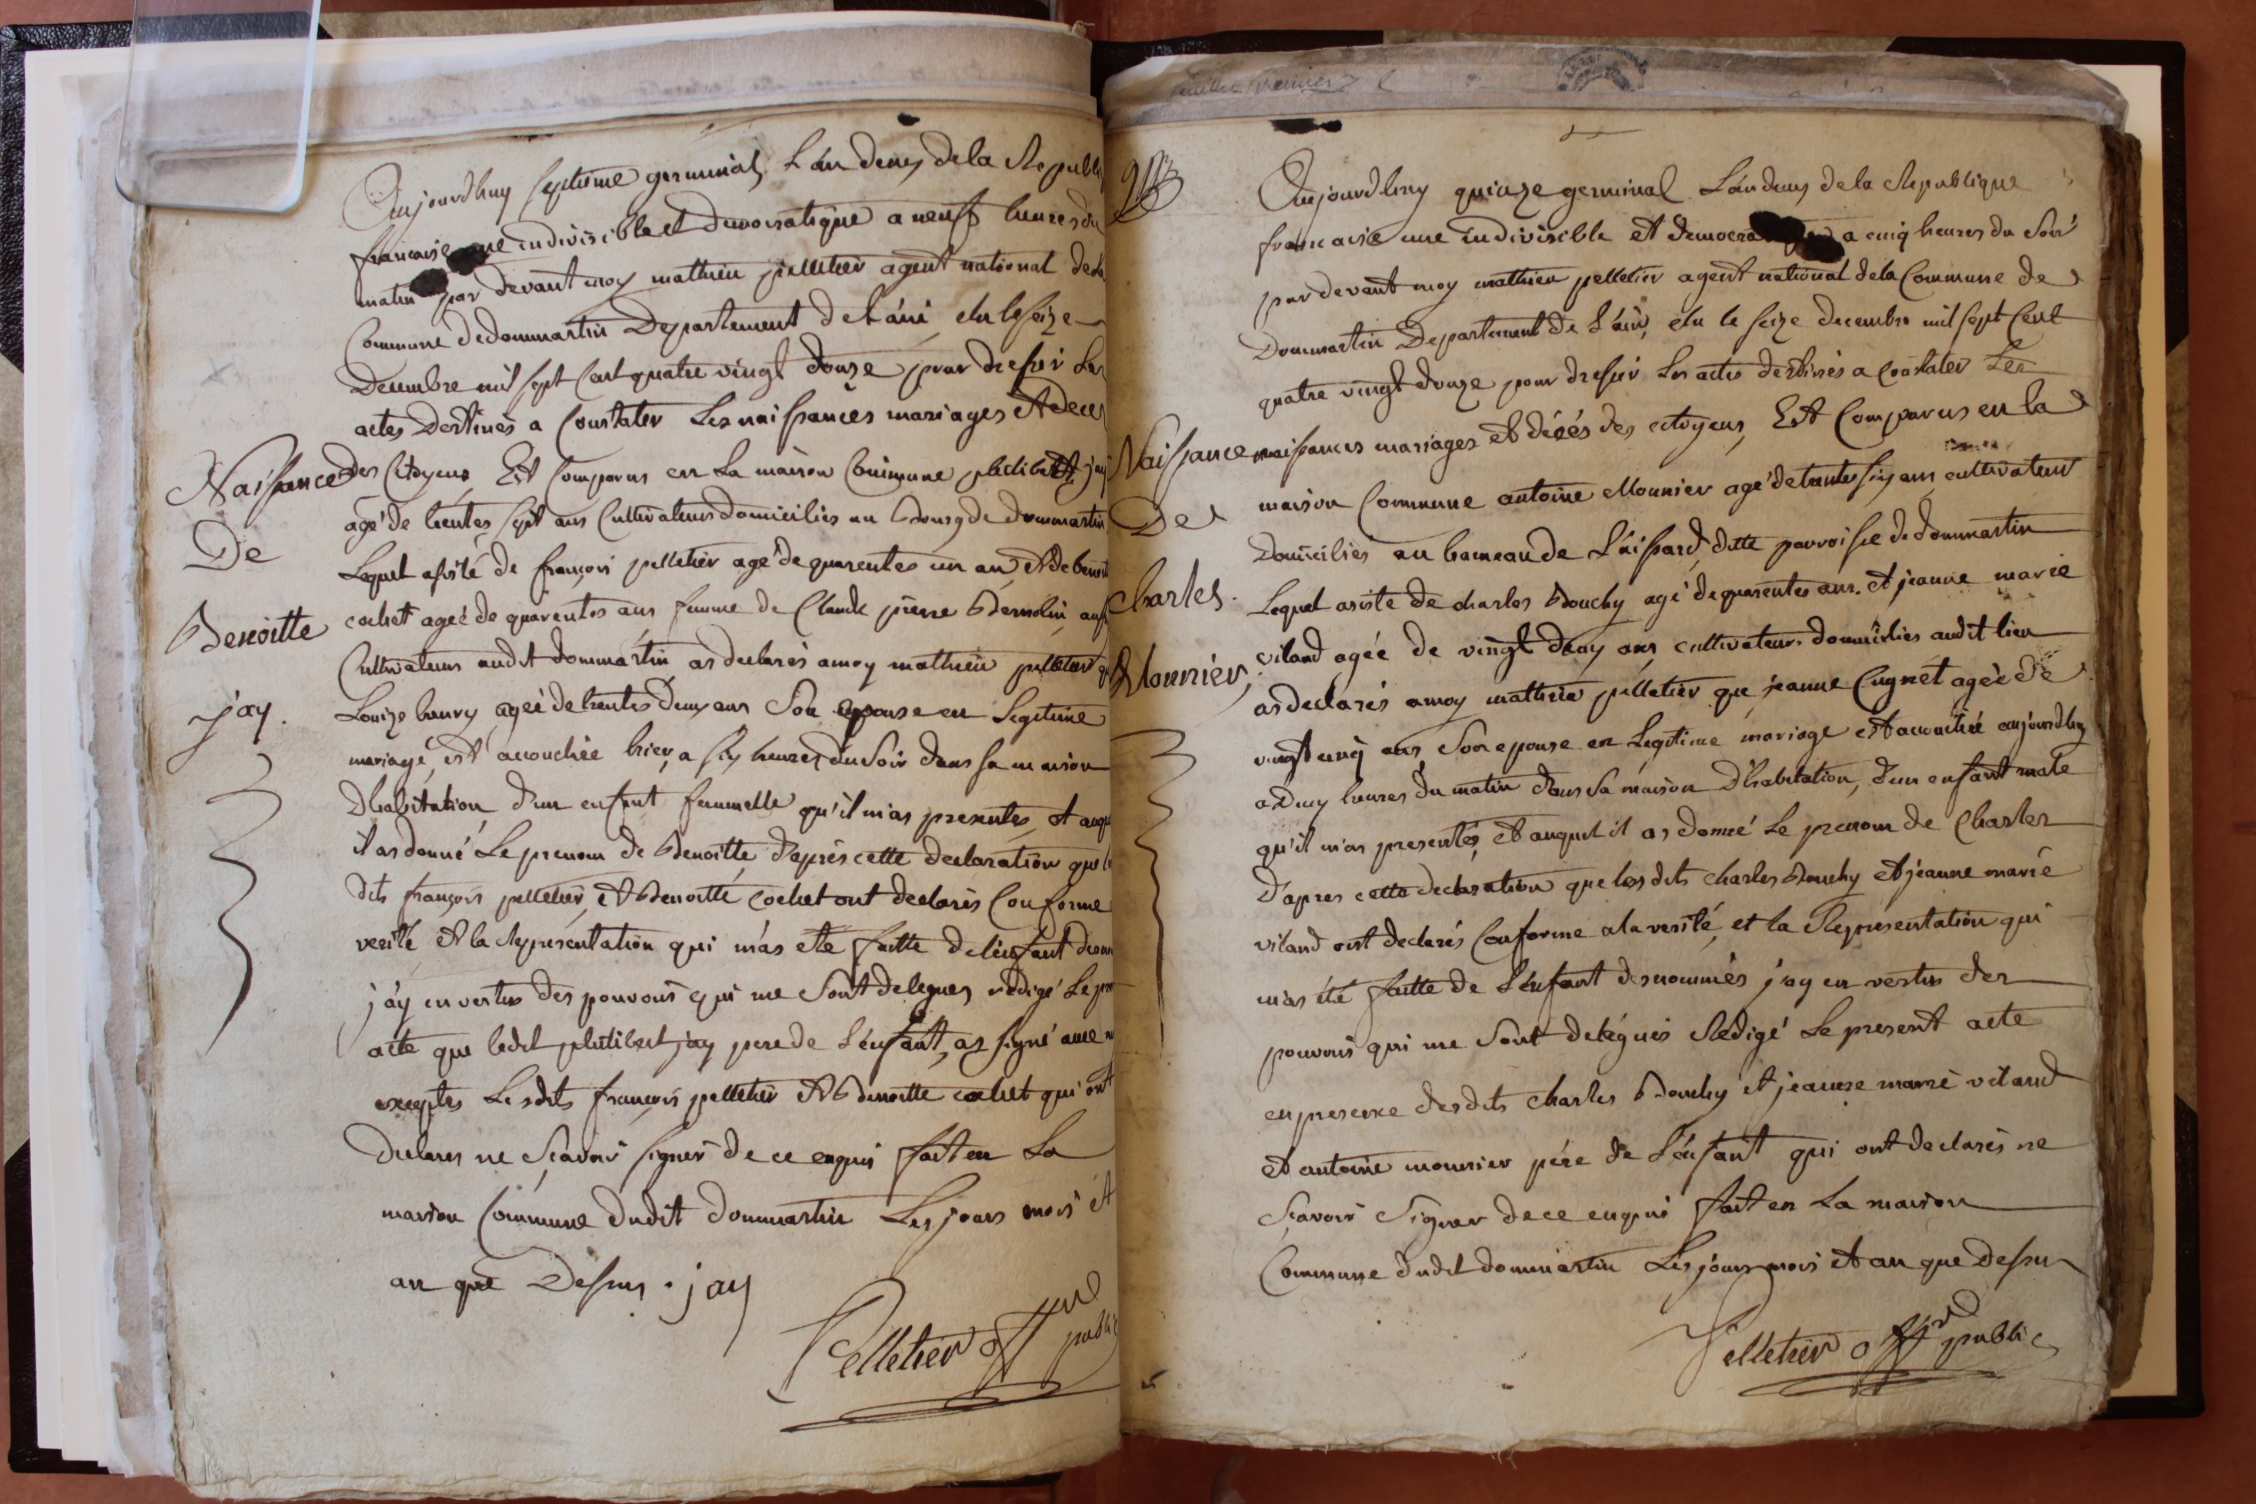 Aujourdhuy septieme germinal L'an deux de la Republi
francaise une indivisible et democratique a neuf heures du
matin par devant moy mathieu pelletier agent national de la
Commune de dommartin Departement de L'ain elu le seize
Decembre mil sept Cent quatre vingt douze pour dresser Les
actes Destinés a Constater Les naissances mariages Et deces
des Citoyens Est Comparus en La maison Commune philibert jay
agé de trentes sept ans Cultivateurs domiciliés au Bourg de dommartin
Lequel assité de françois pelletier agé de quarentes un an Et de benoit
cochet ageé de quarentes ans femme de Claude pierre Bernolin aussi
Cultivateurs audit dommartin as declarés a moy mathieu pelletier q
Louize bouvry ageé de trentes Deux ans Son epouse en Legitime
mariage, est accouchée hier, a six heures du Soir dans sa maison
D'habitation, d'un enfant femmelle qu'il m'as presentes et auqu
il as donné Le prenom de Benoitte, D'après cette declaration que le
dits françois pelletier Et Benoitte cochet ont declarés Conforme
verité Et la Representation qui m'as eté faitte de l'enfant denom
j'ay en vertus des pouvoirs qui me Sont delegues redigé Le pre
acte que ledit philibert jay pere de L'enfant, as signé avec m
exceptes Lesdits françois pelletier Et Benoitte cochet qui ont
Declares ne Scavoir signer de ce enquis fait en La
maison Commune dudit dommartin Les jours mois et
an que Dessus . jay
Pelletier off public
Naissance
De
Benoitte
jay.
Aujourdhuy quinze germinal L'an deux de la Republique
francaise une indivisible Et democra a cinq heures du Soir
par devant moy mathieu pelletier agent national de la Commune de
Dommartin Departement de L'ain, elu le seize decembre mil sept Cent
quatre vingt douze pour dresser Les actes destinés a Constater Les
naissances mariages et décés des citoyens, Est Comparus en la
maison Commune antoine Mounier agé de trentes six ans cultivateur
Domiciliés au hameau de L'aissard, ditte parroisse de dommartin
Lequel asisté de charles Bouchy agé de quarentes ans. et jeanne marie
viland ageé de vingt deux ans cultivateurs domiciliés audit lieu
as declarés a moy mathieu pelletier que jeanne Cugnet ageé de
vingt cinq ans Son epouse en Legitime mariage est accouchée aujourdhuy
a Deux heures du matin dans Sa maison D'habitation, d'un enfant male
qu'il m'as presentés, Et auquel il as donné Le prenom de Charles
D'apres cette declaration que les dits charles Bouchy Et jeanne marie
viland ont declarés Conforme a la verité, et la Representation qui
m'as été faitte de L'enfant denommés j'ay en vertus des
pouvoirs qui me Sont delégués Redigé Le present acte
en presence desdits charles Bouchy et jeanne marie viland
Et antoine mounier pére de L'énfant qui ont declarés ne
Scavoir Signer de ce enquis fait en La maison
Commune dudit dommartin Les jours mois Et an que dessus
Pelletier off public
Naissance
De
Charles
Mounier,